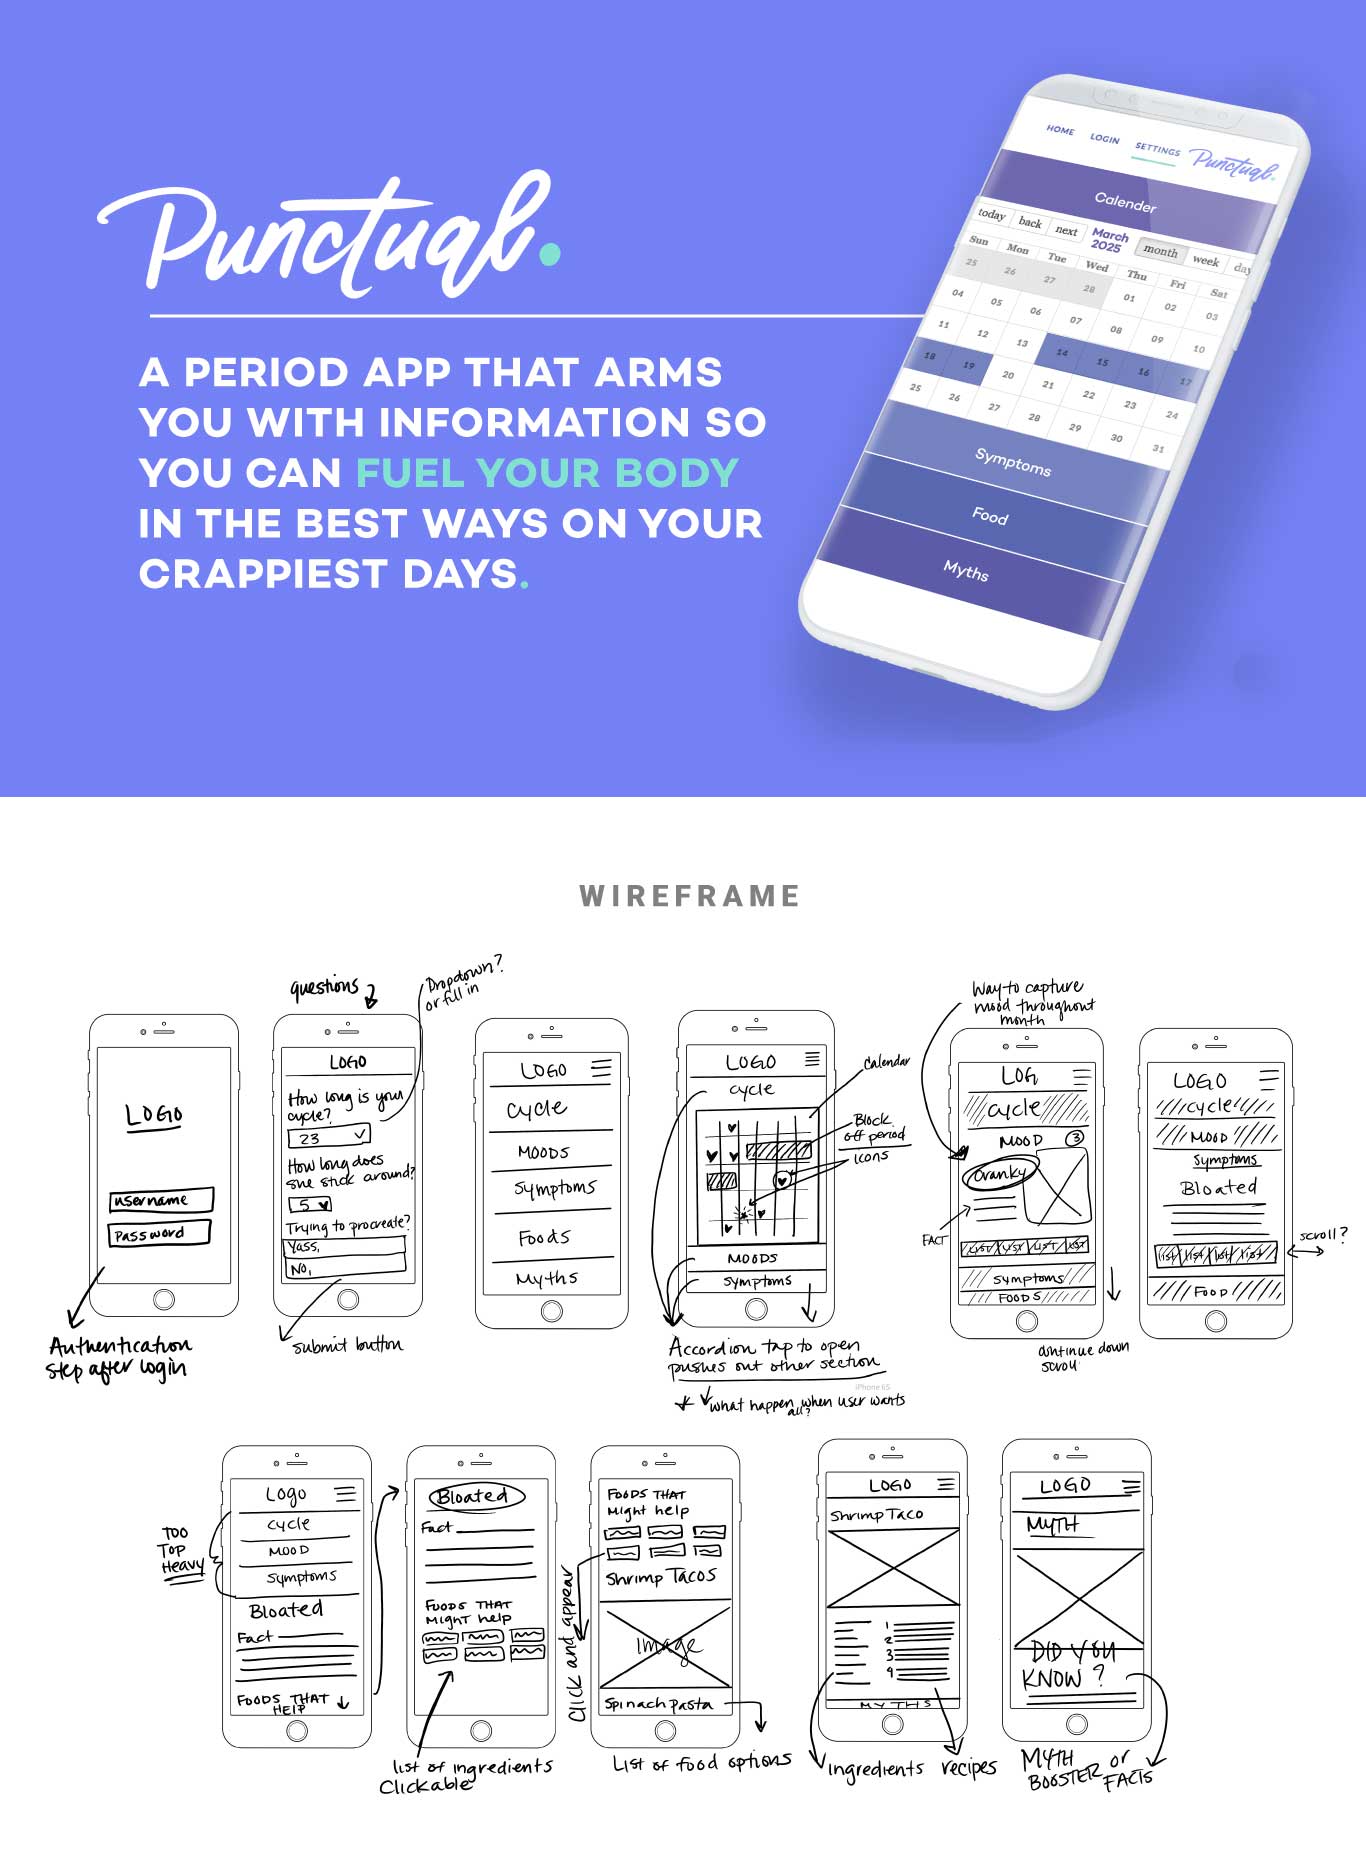 Punctual.
A PERIOD APP THAT ARMS
YOU WITH INFORMATION SO
YOU CAN FUEL YOUR BODY
IN THE BEST WAYS ON YOUR
CRAPPIEST DAYS.
HOME LOGIN SETTINGS Punctual.
Calender
today back next March 2025 month week day
Sun Mon Tue Wed Thu Fri Sat
25 26 27 28 01 02 03
04 05 06 07 08 09 10
11 12 13 14 15 16 17
18 19 20 21 22 23 24
25 26 27 28 29 30 31
Symptoms
Food
Myths
WIREFRAME
LOGO
username
password
Authentication
step after login
questions
Dropdown?
or full in
LOGO
How long is your
cycle?
23
How long does
she stick around?
5
Trying to procreate?
Yass,
No,
submit button
LOGO
cycle
MOODS
symptoms
Foods
Myths
LOGO
cycle
calendar
Block
off period
icons
MOODS
symptoms
Accordion tap to open
pushes out other section
iPhone 6S
what happen when user wants
all?
Way to capture
mood throughout
month
LOG
cycle
MOOD 3
Cranky
FACT
LIST LIST LIST LIST
symptoms
FOODS
continue down
scroll
LOGO
cycle
MOOD
symptoms
Bloated
list list list list
scroll?
FOOD
TOO
TOP
Heavy
Logo
cycle
MOOD
symptoms
Bloated
Fact
FOODS THAT
HELP
Bloated
Fact
FOODS THAT
Might help
list of ingredients
Clickable
Click and appear
FOODS THAT
Might help
Shrimp Tacos
Image
Spinach pasta
List of food options
LOGO
Shrimp Taco
1
2
3
4
MYTHS
ingredients
recipes
LOGO
MYTH
DID YOU
KNOW?
MYTH
BOOSTER or
FACTS